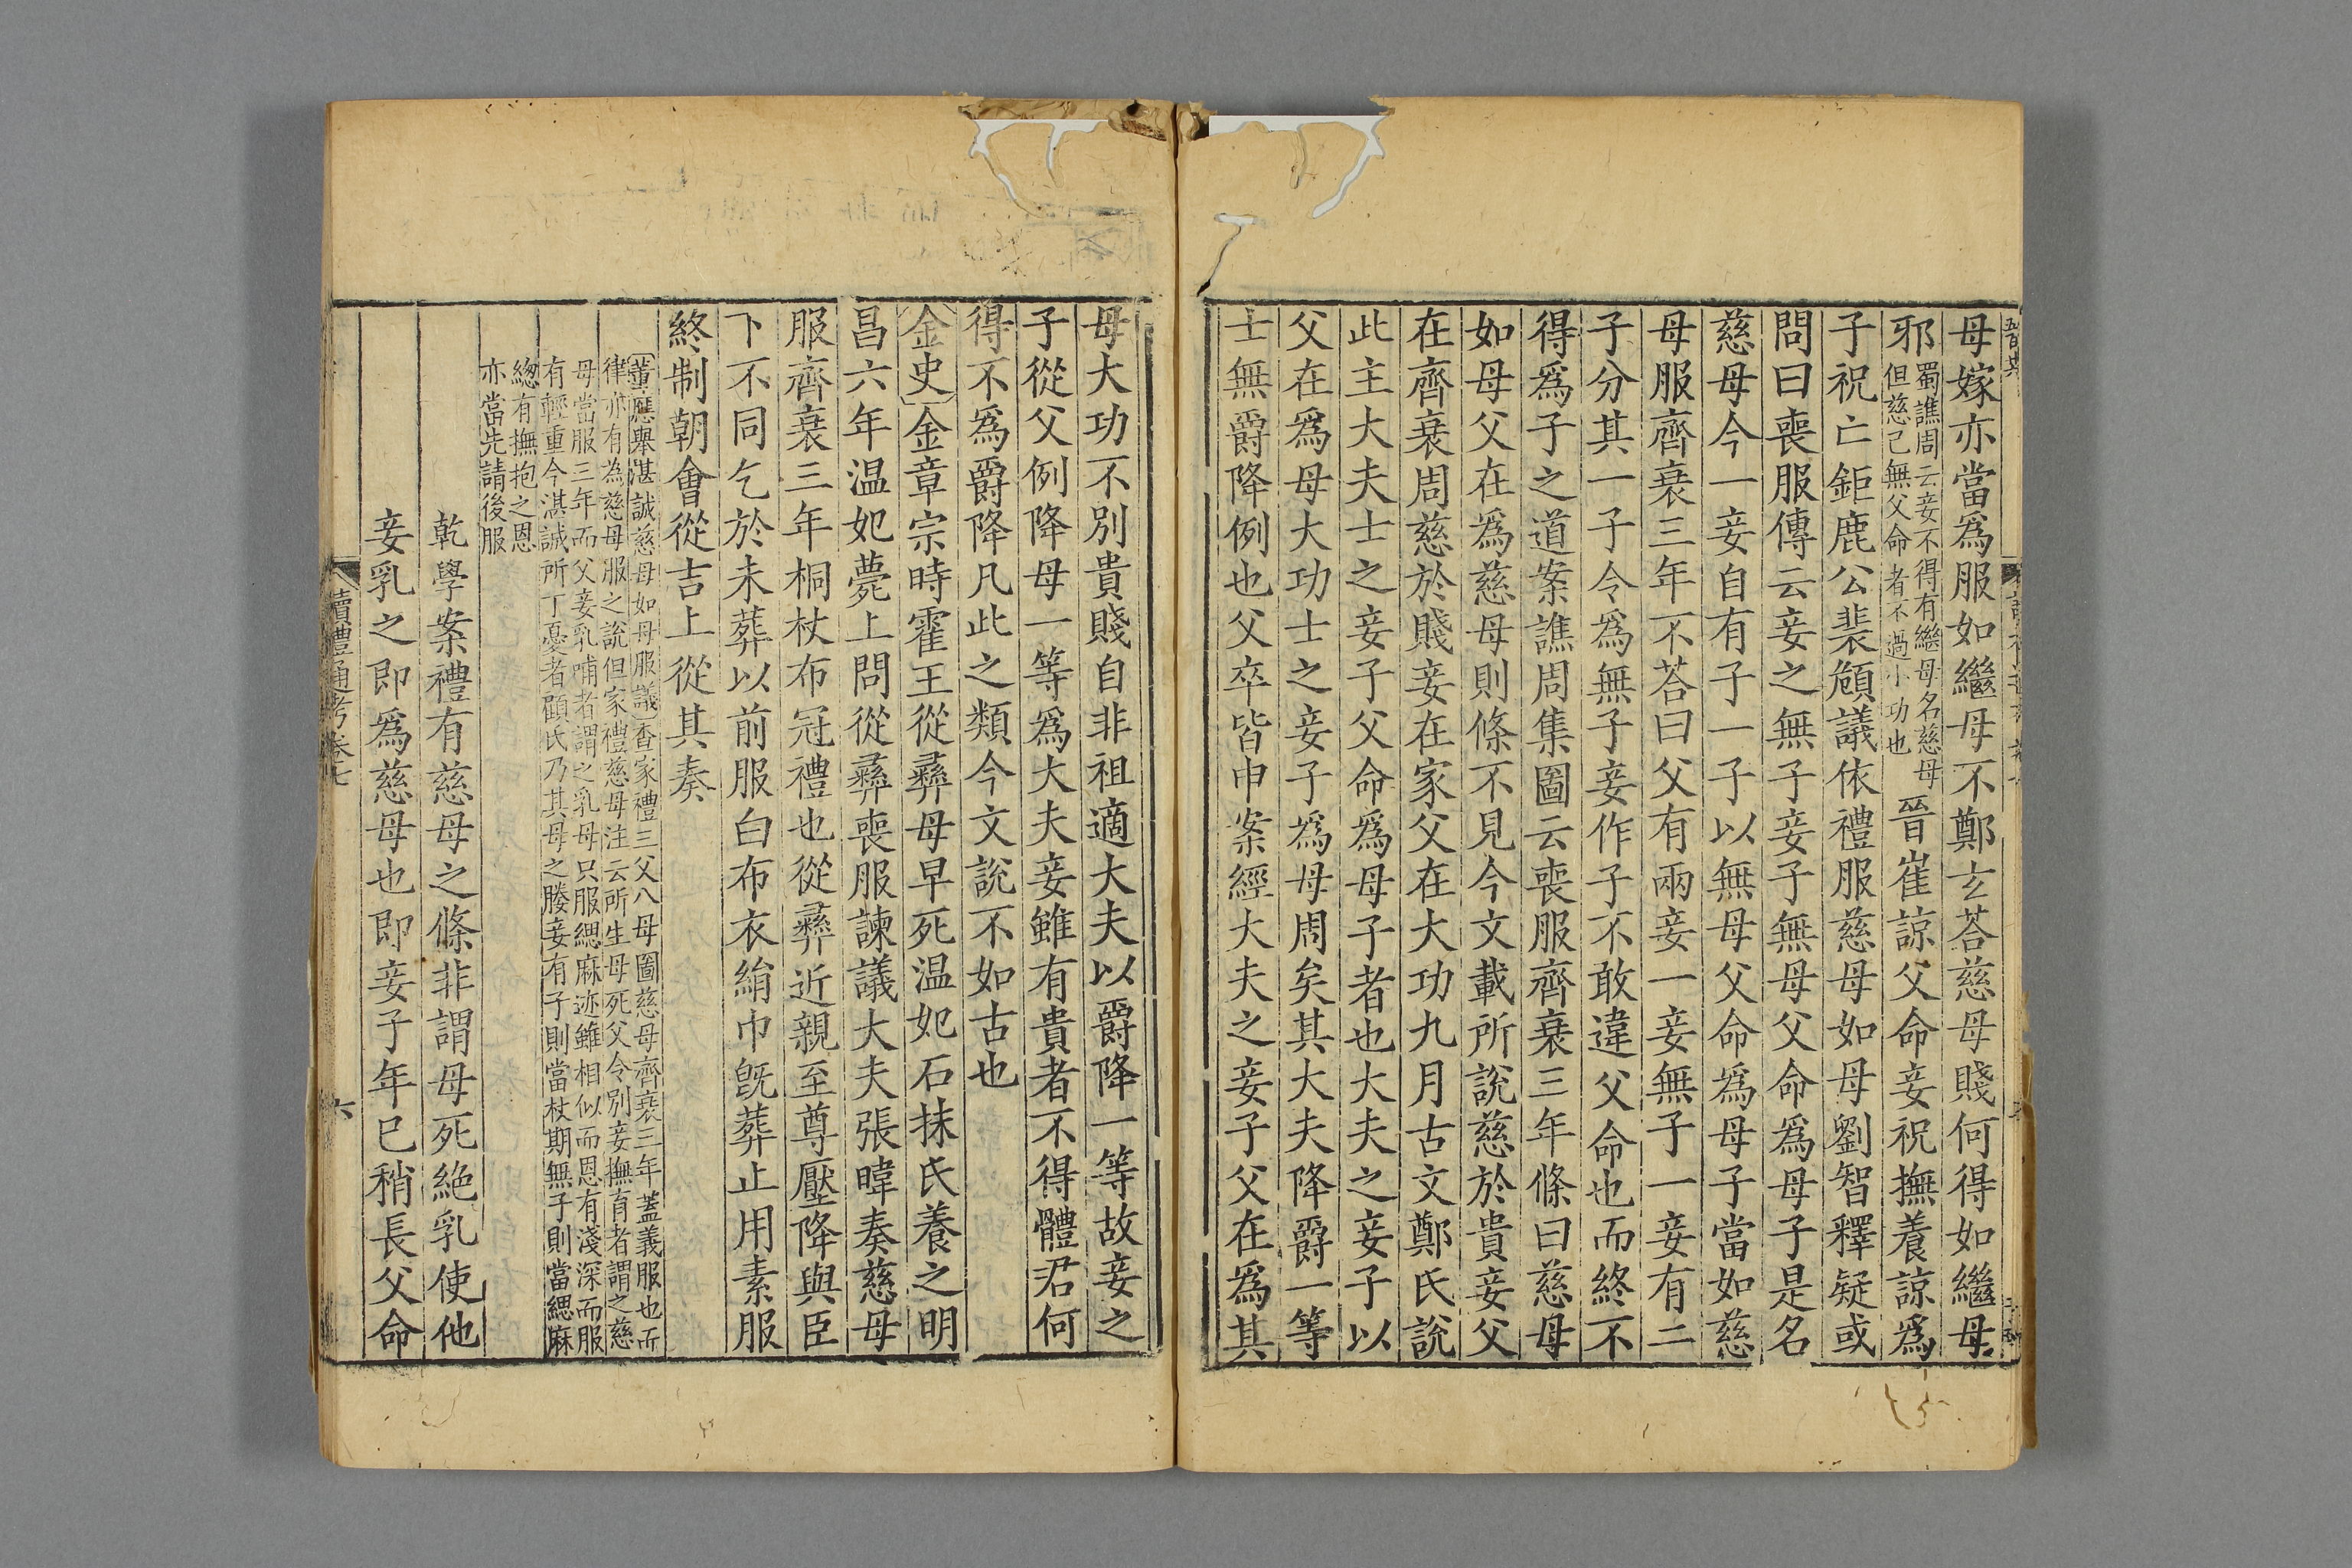 母嫁亦當爲服如繼母不鄭玄荅慈母賤何得如繼母
邪蜀譙周云妾不得有繼母名慈母但慈己無父命者不過小功也晉崔諒父命妾祝撫養諒爲
子祝亡鉅鹿公裴頠議依禮服慈母如母劉智釋疑或
問曰喪服傳云妾之無子妾子無母父命爲母子是名
慈母今一妾自有子一子以無母父命爲母子當如慈
母服齊衰三年不荅曰父有兩妾一妾無子一妾有二
子分其一子令爲無子妾作子不敢違父命也而終不
得爲子之道案譙周集圖云喪服齊衰三年條曰慈母
如母父在爲慈母則條不見今文載所說慈於貴妾父
在齊衰周慈於賤妾在家父在大功九月古文鄭氏說
此主大夫士之妾子父命爲母子者也大夫之妾子以
父在爲母大功士之妾子爲母周矣其大夫降爵一等
士無爵降例也父卒皆申案經大夫之妾子父在爲其
母大功不別貴賤自非祖適大夫以爵降一等故妾之
子從父例降母一等爲大夫妾雖有貴者不得體君何
得不爲爵降凡此之類今文說不如古也
金史金章宗時霍王從彝母早死温妃石抹氏養之明
昌六年温妃薨上問從彝喪服諫議大夫張暐奏慈母
服齊衰三年桐杖布冠禮也從彝近親至尊壓降與臣
下不同乞於未葬以前服白布衣絹巾旣葬止用素服
終制朝會從吉上從其奏
董應舉湛誠慈母如母服議査家禮三父八母圖慈母齊衰三年蓋義服也而
律亦有為慈母服之說但家禮慈母注云所生母死父令別妾撫育者謂之慈
母當服三年而父妾乳哺者謂之乳母只服緦麻迹雖相似而恩有淺深而服
有輕重今湛誠所丁憂者顧氏乃其母之媵妾有子則當杖期無子則當緦麻
緫有撫抱之恩
亦當先請後服
乾學案禮有慈母之條非謂母死絶乳使他
妾乳之即爲慈母也即妾子年巳稍長父命
讀禮通考卷七
六